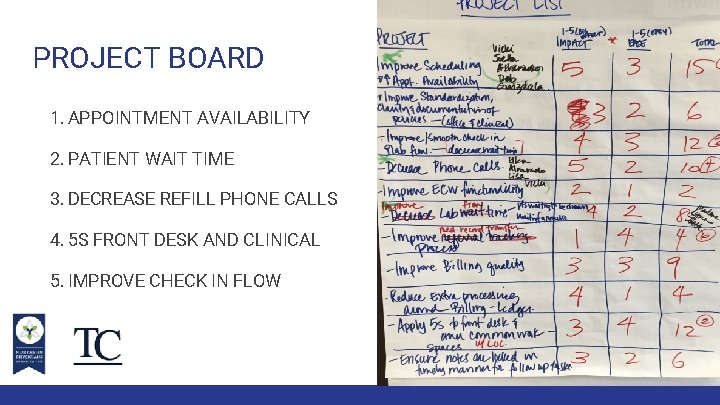 PROJECT BOARD
1. APPOINTMENT AVAILABILITY
2. PATIENT WAIT TIME
3. DECREASE REFILL PHONE CALLS
4. 5S FRONT DESK AND CLINICAL
5. IMPROVE CHECK IN FLOW
TC
PROJECT LIST
PROJECT IMPACT * EASE TOTAL
1-5 1-5 (EASY)
Vicki
Improve Scheduling 5 3 15
Appt. Availability
Deb
Improve Standardization, 3 2 6
Clarity & documentation of
policies - (office & clinical)
- Improve/Smooth check in 4 3 12
& lab flow. decrease wait time
- Decrease Phone Calls 5 2 10
Ellen
Alvarado
Lisa
- Improve ECW functionality Vicki 2 1 2
Improve Flow
Decrease Lab wait time 4 2 8
med. record transfer
- Improve referral tracking 1 4 4
Process
- Improve Billing quality 3 3 9
- Reduce Extra processing 4 1 4
around Billing - Ledger
- Apply 5s to front desk & 3 4 12
other common work
spaces
- Ensure notes are locked in 3 2 6
timely manner for follow up tasks